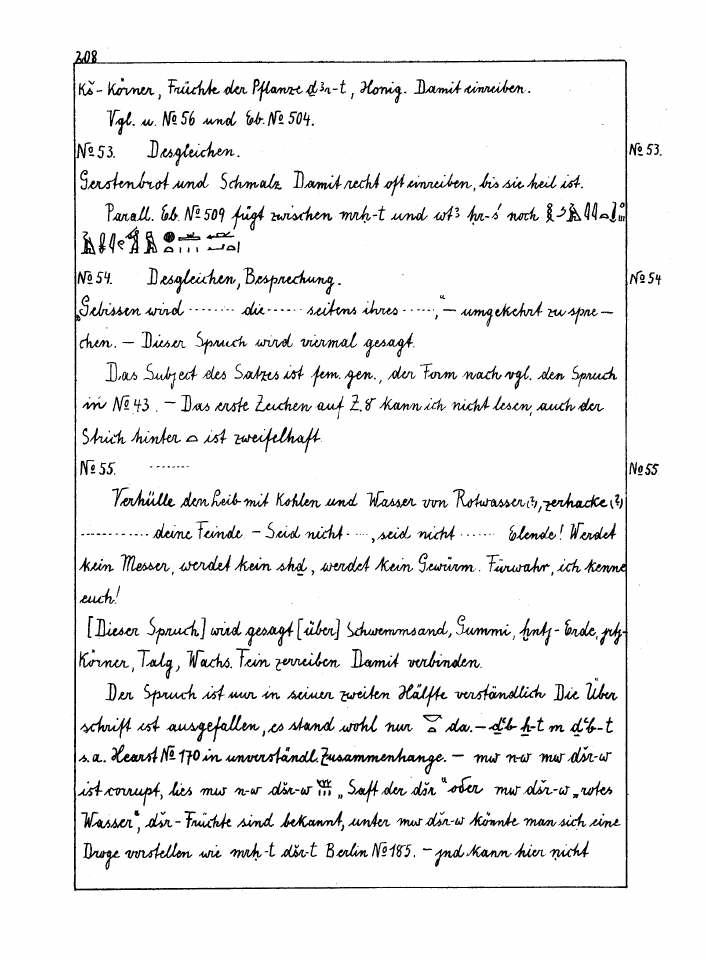 208
Kš-Körner, Früchte der Pflanze ḏꜣr-t, Honig. Damit einreiben.
Vgl. u. No 56 und Eb. No 504.
No 53. Desgleichen. No 53.
Gerstenbrot und Schmalz Damit recht oft einreiben, bis sie heil ist.
Parall. Eb. No 509 fügt zwischen mrḥ-t und wtꜣ ḥr-ś noch
No 54. Desgleichen, Besprechung. No 54
„Gebissen wird ........ die ...... seitens ihres ......,“ — umgekehrt zu spre—
chen. — Dieser Spruch wird viermal gesagt.
Das Subject des Satzes ist fem. gen., der Form nach vgl. den Spruch
in No 43. — Das erste Zeichen auf Z. 8 kann ich nicht lesen, auch der
Strich hinter 𓏏 ist zweifelhaft.
No 55. ........ No 55
Verhülle den Leib mit Kohlen und Wasser von Rotwasser (?), zerhacke (?)
........... deine Feinde — Seid nicht ...., seid nicht ...... Elende! Werdet
kein Messer, werdet kein shḏ, werdet kein Gewürm. Fürwahr, ich kenne
euch!
[Dieser Spruch] wird gesagt [über] Schwemmsand, Gummi, ḫntj-Erde,
Körner, Talg, Wachs. Fein zerreiben Damit verbinden.
Der Spruch ist nur in seiner zweiten Hälfte verständlich Die Über
schrift ist ausgefallen, es stand wohl nur da. — ḏꜥb ẖ-t m ḏꜥb-t
s. a. Hearst No 170 in unverständl. Zusammenhange. — mw n-w mw dšr-w
ist corrupt, lies mw n-w dšr-w „Saft der dšr“ oder mw dšr-w „rotes
Wasser“, dšr-Früchte sind bekannt, unter mw dšr-w könnte man sich eine
Droge vorstellen wie mrḥ-t dšr-t Berlin No 185. — jnd kann hier nicht